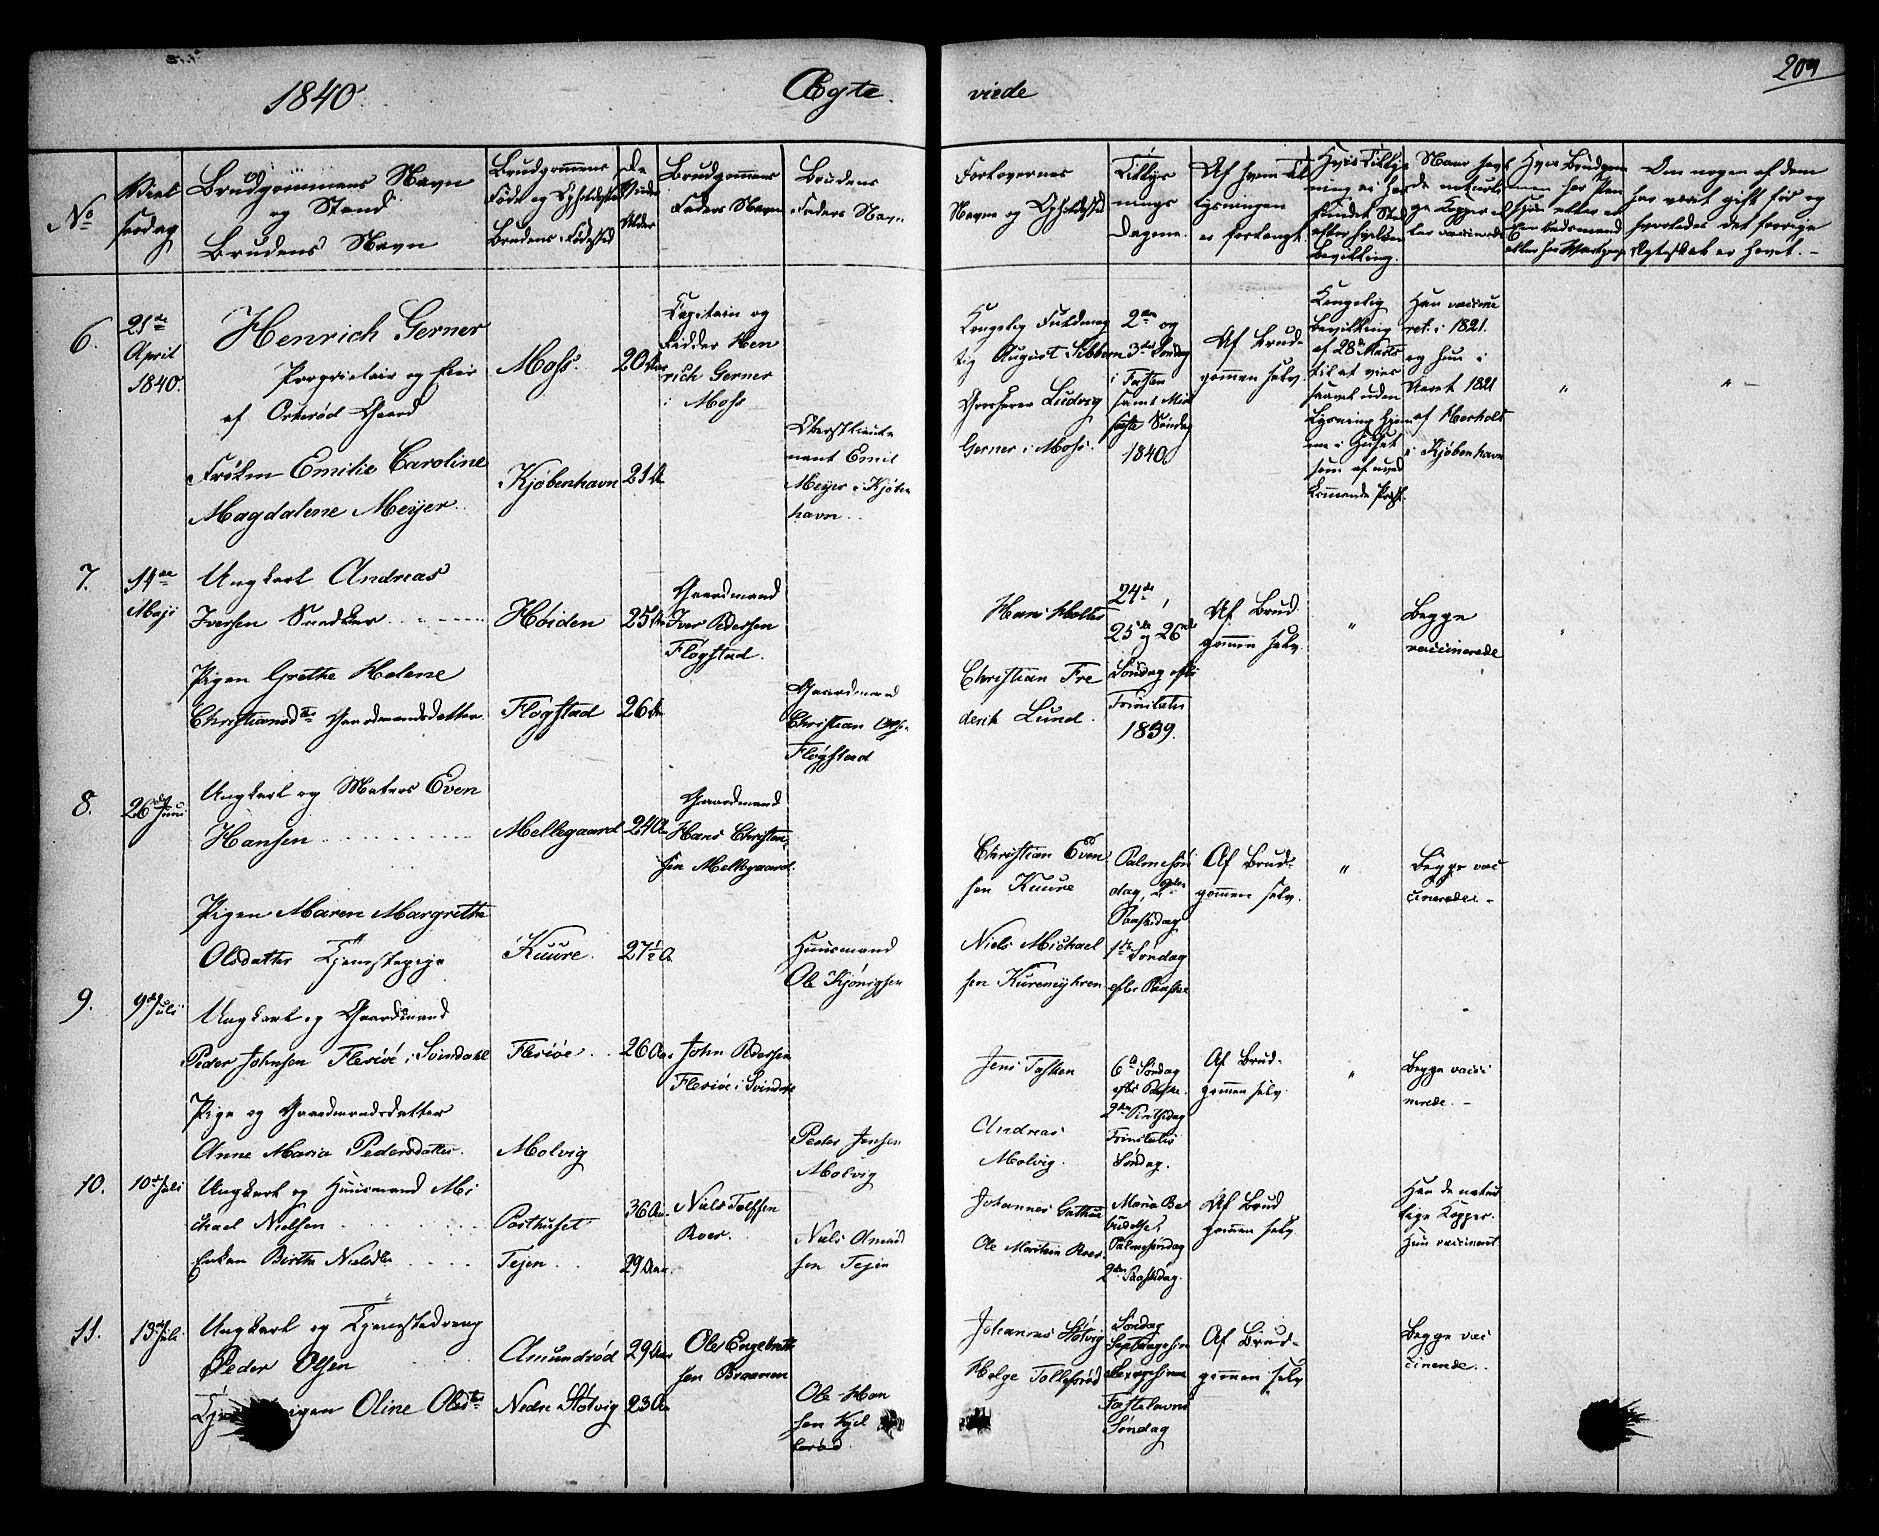 1840
Ægte
viede
209
No
Viel
sesdag
Brudgommens Navn
og Stand
Brudens Navn
Brudgommens
Føde og Opholdssted
Brudens Fødested
De
Viedes
Alder
Brudgommens
Faders Navn
Brudens
Faders Navn
Forlovernes
Navne og Opholdssted
Tillys
nings
Dagene.
Af hvem Til
lysningen
er forlangt
Hvis Tillys
ning ei har
fundet Sted
efter hvilken
Bevilling.
Naar havt
de naturli
ge Kopper el
ler vaccinerede
Om nogen af dem
har været gift før og
hvorledes det forrige
Ægteskab er hævet.
6.
21de
April
1840.
Henrich Gerner
Proprietair og Eier
af Orkerød Gaard
Frøken Emilie Caroline
Magdalene Meÿer
Moss.
Kjøbenhavn
20 Aar
21 A
Capitain og
Ridder Hen
rich Gerner
i Moss
Oberstlieute
nant Emil
Meÿer i Kjøben
havn
Kongelig Fuldmæg
tig August Sibbern
Grosserer Ludvig
Gerner i Moss.
2den og
3die Søndag
i Fasten
samt Mid
faste Søndag
1840
Af Brud-
gommen selv.
Kongelig
Bevilling
af 28de Marts
til at vies
saavel uden
Lysning hjem
me i Huset
som af uved
kommende Præst.
Han vaccine
ret i 1821.
og hun i
Aaret 1821
af Herholdt
i Kjøbenhavn
"
" -
7.
14de
Maji
Ungkarl Andreas
Iversen
Pigen Grethe Helene
Christiansdtr Gaardmandsdatter
Høiden
Fløgstad
25 A
26 A
Gaardmand
Iver Pedersen
Fløgstad.
Gaardmand
Christian
Fløgstad
Hans
Christian Fre
derik Lund.
24de,
25de og 26de
Søndag efter
Trinitatis
1839.
Af Brud
gommen selv.
"
Begge
vaccinerede
"
8.
26de Juni
Ungkarl og Matros Even
Hansen
Pigen Maren Margrethe
Olsdatter Tjenestepige
Mellegaard
Kuure.
24 A
27½ A
Gaardmand
Hans Christen
sen Mellegaard.
Huusmand
Ole Kjønigsen
Christian Even
sen Kuure
Niels Michael
sen Kuremyhren
Palmesøn
dag, 2den
Paaskedag
1ste Søndag
efter Paaske
Af Brud-
gommen selv.
"
Begge vac
cinerede. -
9.
9de Juli
Ungkarl og Gaardmand
Peder Johnsen Flesiøe i Svindahl
Pige og Gaardmandsdatter
Anne Maria Pedersdatter.
Flesiøe
Molvig
26 Aar
John Pedersen
Flesiøe i Svindahl
Peder Jensen
Molvig
Jens Tasken
Andreas
Molvig.
6te Søndag
efter Paaske.
2den Pintsedag
Trinitatis
Søndag.
Af Brud-
gommen selv
"
Begge vacci
nerede. -
10.
10de Juli
Ungkarl og Huusmand Mi
chael Nielsen
Enken Birthe Nielsdtr
Posthuset
Tejen
36 Aar
29 Aar.
Niels Tolfsen
Roer.
Niels Amund
sen Tejen
Johannes
Ole Mortensen Roer.
Maria Be
budelse,
Palmesøndag
2den Paaskedag.
Af Brud
gommen selv
Han de natur
lige Kopper.
Hun vaccineret
11.
13de Juli
Ungkarl og Tjenestedreng
Peder Olsen
Oline Olsdtr
Amundrød
Nedre Støtvig
29 Aar
23 Aar
Ole Engebret
sen Braanen
Ole Han
sen Kjel
lerød.
Johannes Støtvig
Helge Tollefsrød
Søndag
Septuagesima
Sexagesima
Fastelavns
Søndag
Af Brud-
gommen selv
Begge vac
cinerede.